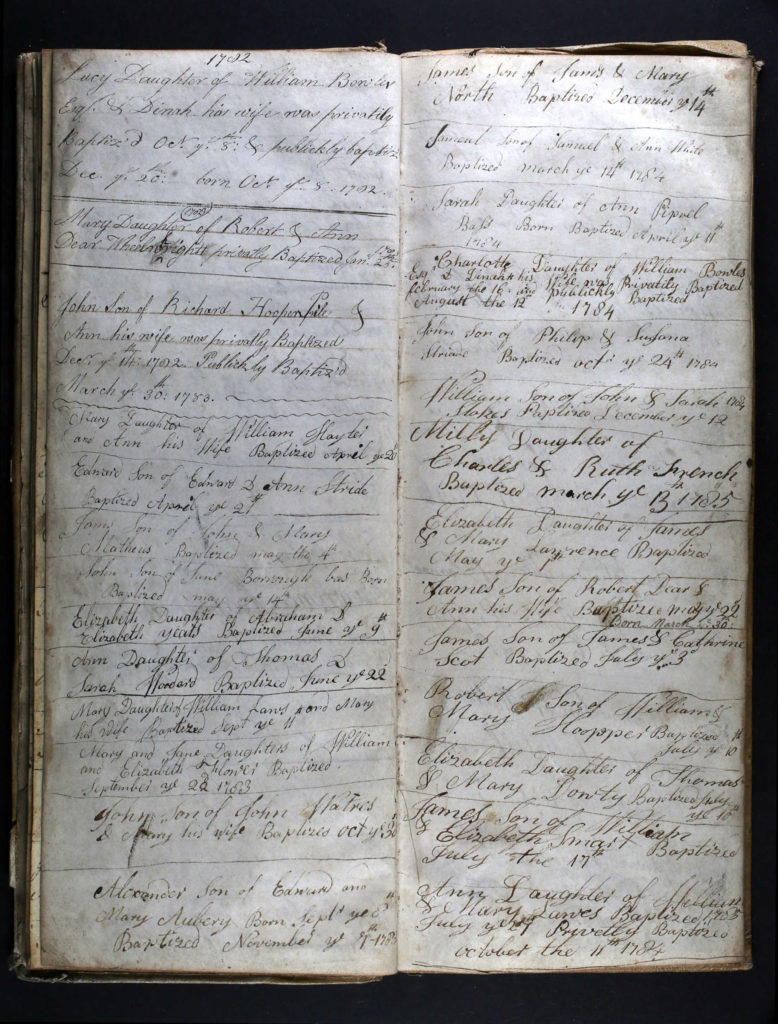 1782
Lucy Daughter of William Bowles
Esqr. & Dinah his wife was privatily
Baptiz'd Oct. ye. 8th: & publickly baptiz
Dec. ye. 20th: born Oct. ye. 8. 1782.
Mary Daughter of Robert & Ann
Dear privatly Baptized Jan. 23.
John Son of Richard Hooper &
Ann his wife was privatly Baptized
Decr. ye 14th: 1782. Publickly Baptiz'd
March ye. 30th: 1783.
Mary Daughter of William Hayter
and Ann his Wife Baptized April ye 20
Edward Son of Edward & Ann Stride
Baptized April ye 2
James Son of John & Mary
Matheus Baptized may the 4th
John Son of Jane Borrough bas Born
Baptized may ye 14th
Elizbeth Daughter of Abraham &
Elizabeth yeats Baptized June ye 9th
Ann Daughter of Thomas &
Sarah Baptized June ye 22
Mary Daughter of William Laws and Mary
his Wife Baptized Sept ye 11
Mary and Jane Daughters of William
and Elizabeth Flower Baptized
September ye 22 1783
John Son of John
& Mary his wife Baptized oct ye 30
Alexender Son of Edward and
Mary Aubery Born Septr ye 8th
Baptized November ye 7th 1783
James Son of James & Mary
North Baptized December ye 14th
Samuul Son of Samuel & Ann White
Baptized march ye 14th 1784
Sarah Daughter of Ann
Bass Born Baptized April ye 11th
1784
Charlotte Daughter of William Bowles
Esq. & Dinah his Wife was Privatily Baptized
february the 16 and publickly Baptized
August the 12 1784
John son of Philip & Susana
Baptized octr ye 24th 1784
William Son of John & Sarah 1784
Stokes Baptized December ye 12
Milly Daughter of
Charles & Ruth French
Baptized march ye 13 1785
Elizabeth Daughter of James
& Mary Lawrence Baptized
May ye 1st
James Son of Robert Dear &
Ann his Wife Baptized may ye 29
Born March ye 30:
James Son of James & Cathrine
Scot Baptized July ye 3
Robert Son of William &
Mary Hoopper Baptized
July ye 10th
Elizabeth Daughter of Thomas
& Mary Dowty Baptized July
ye 10th
James Son of William
& Elizabeth Smart Baptized
July the 17th
Ann Daughter of William
& Mary Lawes Baptized 1785
July ye Privetly Baptized
october the 11th 1784